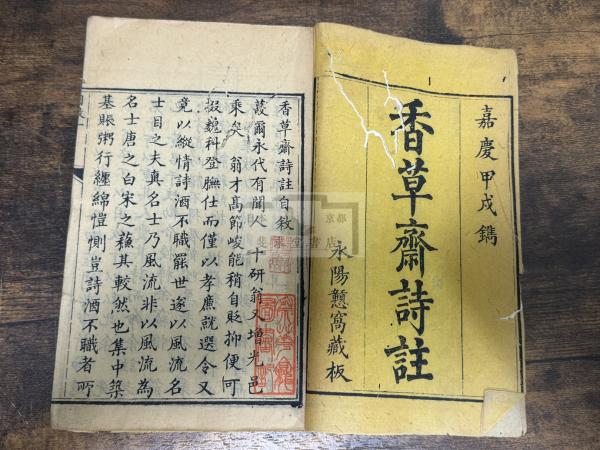 嘉慶甲戌鐫
香草齋詩註
永陽憩窩藏板
香草齋詩註自敘
蕞爾永代有聞人十研翁又增光邑
乘矣　翁才高節峻能稍自貶抑便可
掇巍科登膴仕而僅以孝廉就選令又
竟以縱情詩酒不職罷世遂以風流名
士目之夫真名士乃風流非以風流為
名士唐之白宋之蘇其較然也集中築
基賬粥行纏綿愷惻豈詩酒不職者所
京都
堂書店